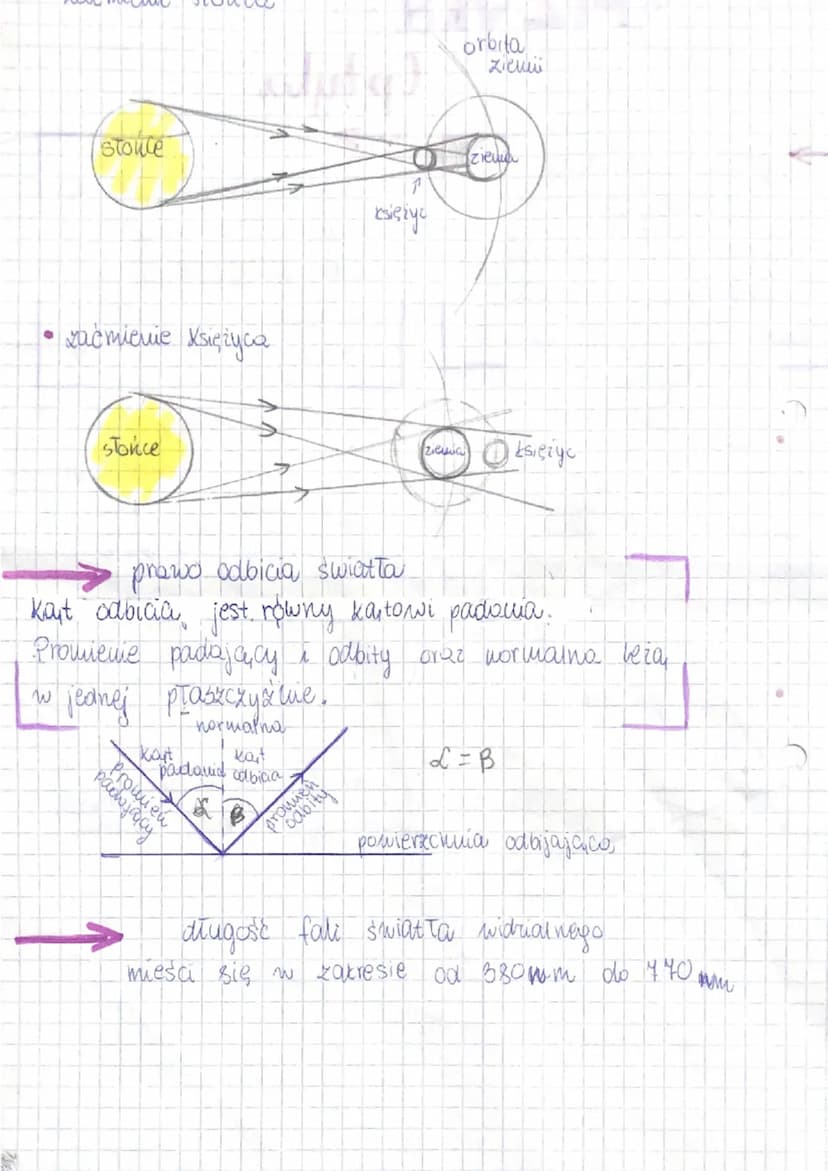 orbita
ziemii
słońce
ziemia
księżyc
• zaćmienie Księżyca
słońce
ziemia
księżyc
prawo odbicia światła
Kąt odbicia jest równy kątowi padania.
Promienie padający i odbity oraz normalna leżą
w jednej płaszczyźnie.
normalna
kąt padania
kąt odbicia
promień padający
α
β
promień odbity
α = β
powierzchnia odbijająca
długość fali światła widzialnego
mieści się w zakresie od 380nm do 770 nm